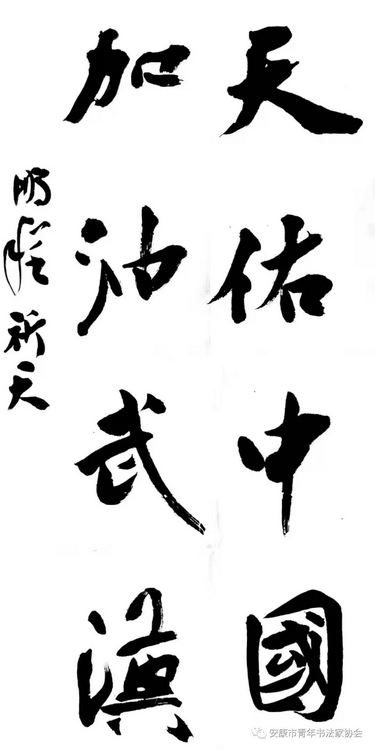 天佑中國
加油武漢
祈天
安康市青年书法家协会